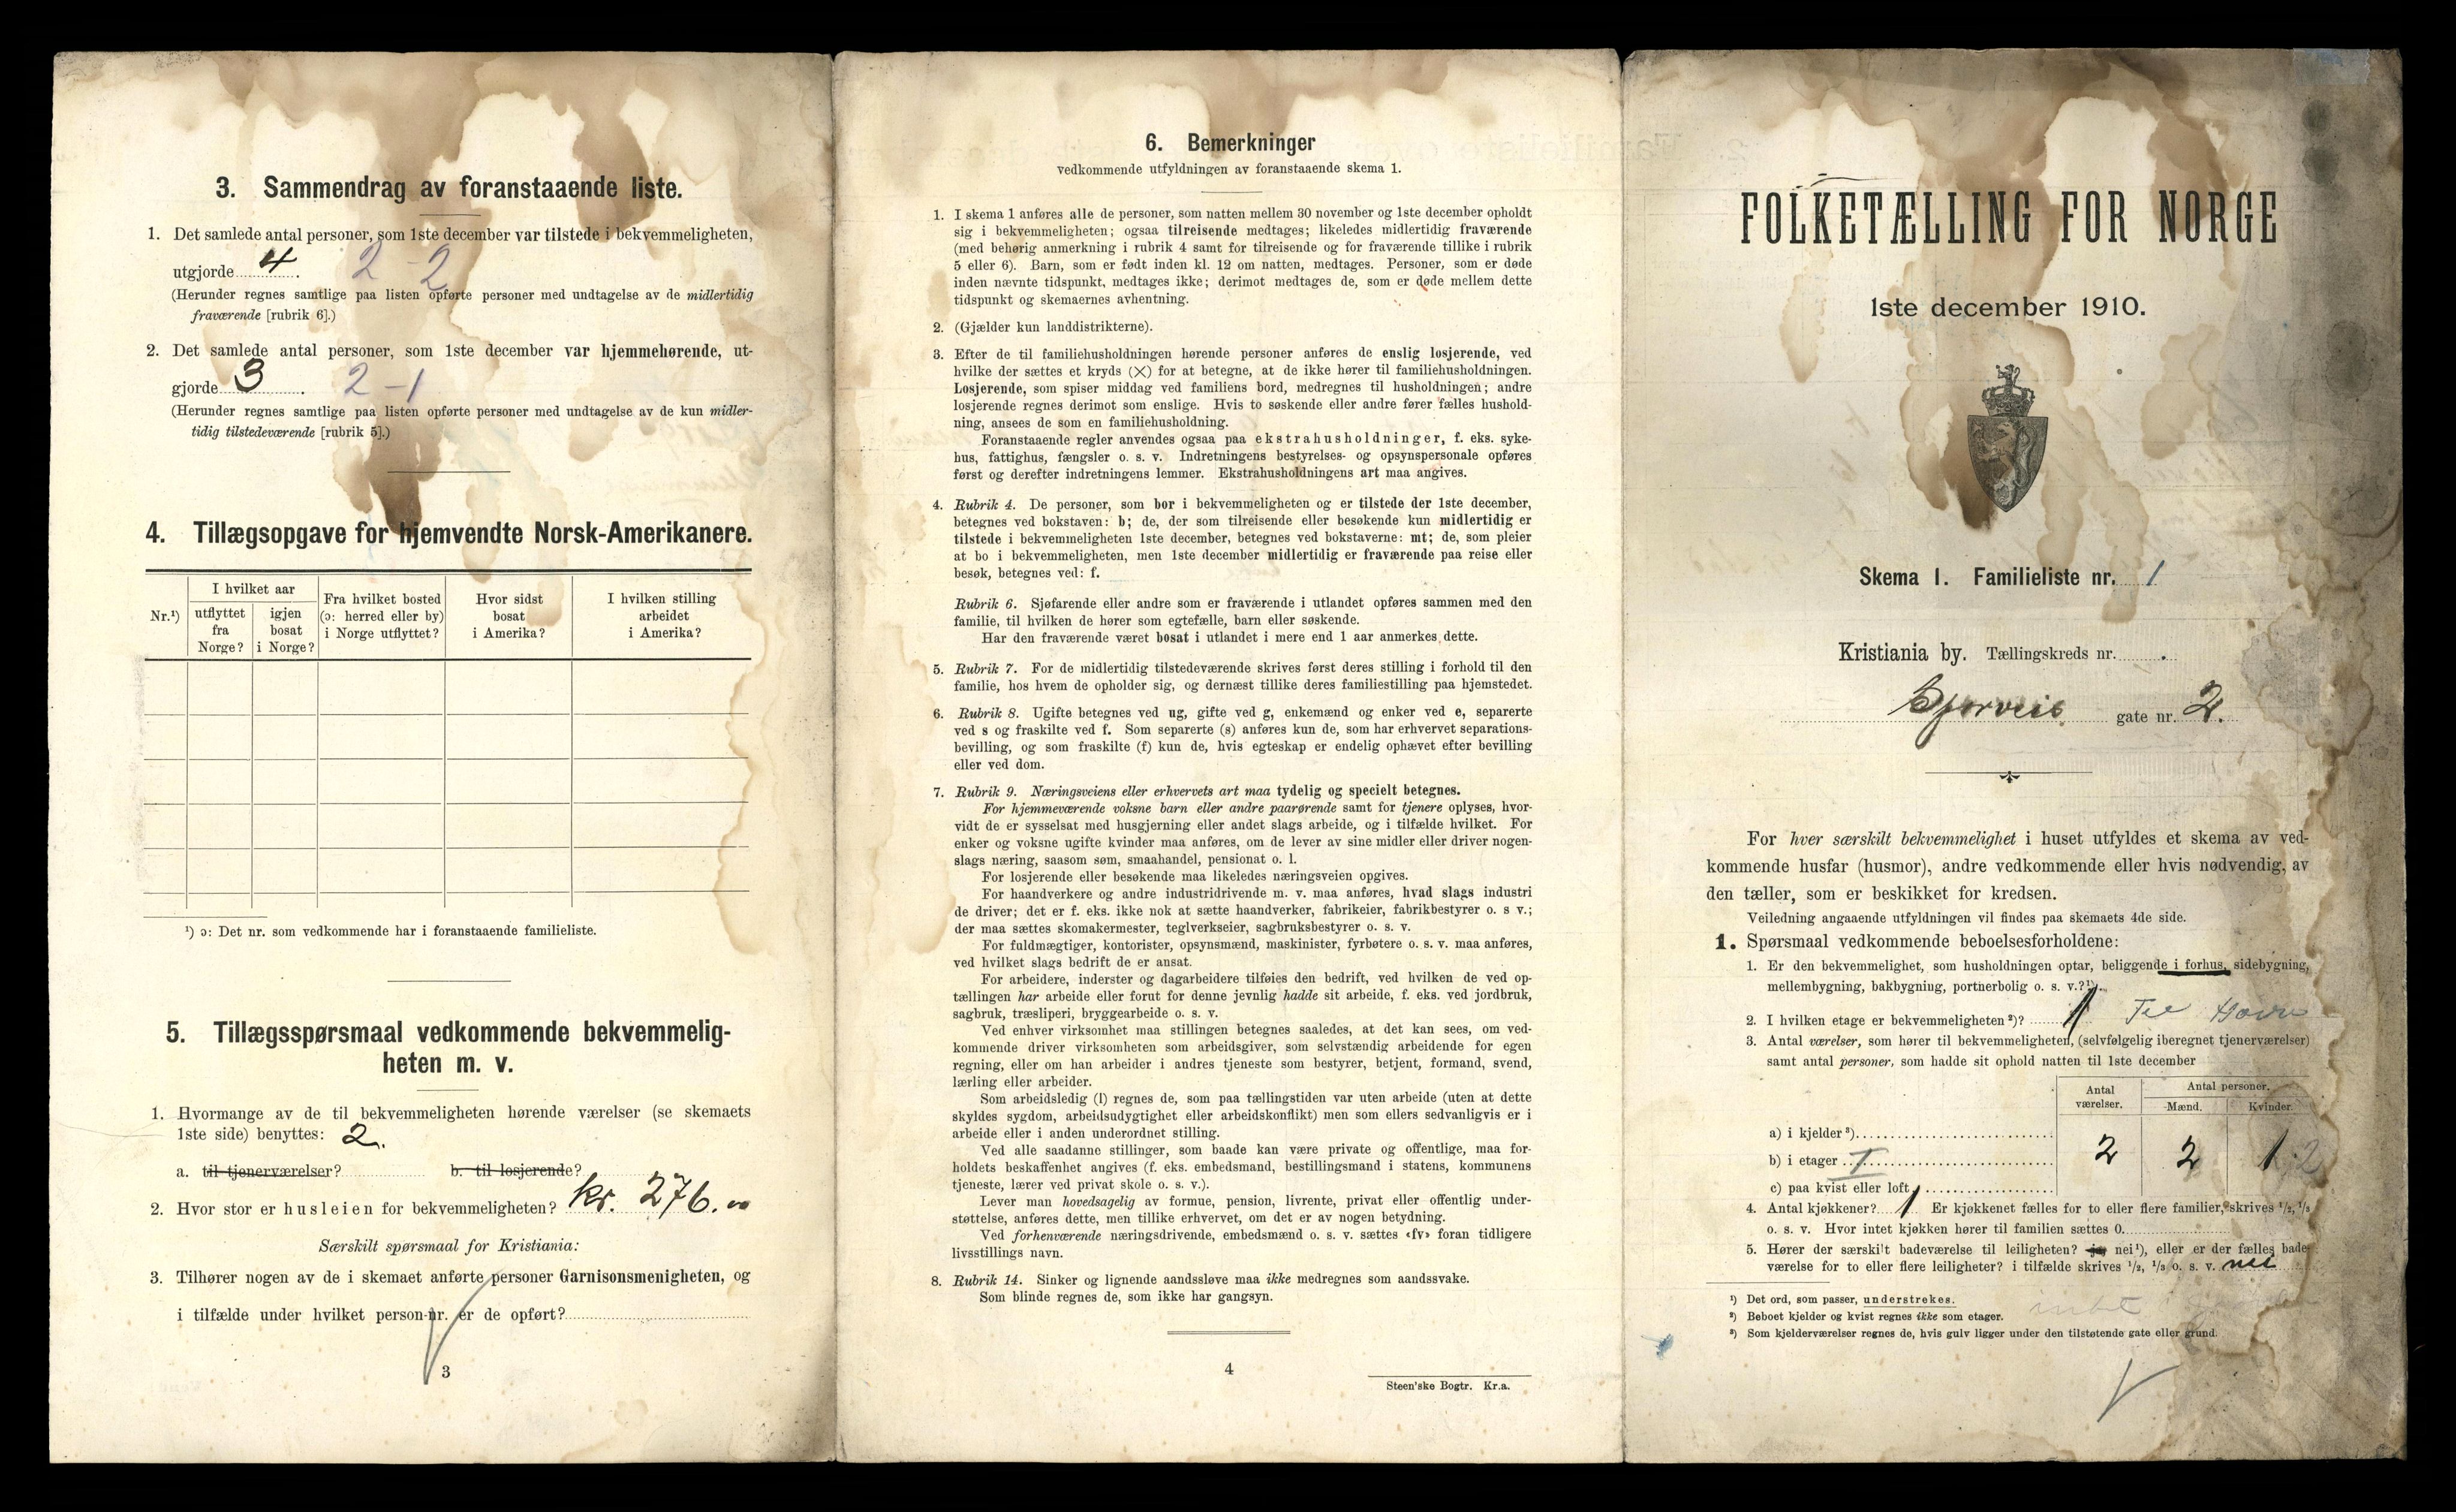 3. Sammendrag av foranstaaende liste.
1. Det samlede antal personer, som 1ste december var tilstede i bekvemmeligheten,
utgjorde 4. 2 - 2
(Herunder regnes samtlige paa listen opførte personer med undtagelse av de midlertidig
fraværende [rubrik 6].)
2. Det samlede antal personer, som 1ste december var hjemmehørende, ut-
gjorde 3. 2 - 1
(Herunder regnes samtlige paa listen opførte personer med undtagelse av de kun midler-
tidig tilstedeværende [rubrik 5].)
4. Tillægsopgave for hjemvendte Norsk-Amerikanere.
Nr.¹)
I hvilket aar
utflyttet
fra
Norge?
igjen
bosat
i Norge?
Fra hvilket bosted
(ɔ: herred eller by)
i Norge utflyttet?
Hvor sidst
bosat
i Amerika?
I hvilken stilling
arbeidet
i Amerika?
¹) ɔ: Det nr. som vedkommende har i foranstaaende familieliste.
5. Tillægsspørsmaal vedkommende bekvemmelig-
heten m. v.
1. Hvormange av de til bekvemmeligheten hørende værelser (se skemaets
1ste side) benyttes: 2.
a. til tjenerværelser? b. til losjerende?
2. Hvor stor er husleien for bekvemmeligheten? kr. 276. 00
Særskilt spørsmaal for Kristiania:
3. Tilhører nogen av de i skemaet anførte personer Garnisonsmenigheten, og
i tilfælde under hvilket person-nr. er de opført?
3
6. Bemerkninger
vedkommende utfyldningen av foranstaaende skema 1.
1. I skema 1 anføres alle de personer, som natten mellem 30 november og 1ste december opholdt
sig i bekvemmeligheten; ogsaa tilreisende medtages; likeledes midlertidig fraværende
(med behørig anmerkning i rubrik 4 samt for tilreisende og for fraværende tillike i rubrik
5 eller 6). Barn, som er født inden kl. 12 om natten, medtages. Personer, som er døde
inden nævnte tidspunkt, medtages ikke; derimot medtages de, som er døde mellem dette
tidspunkt og skemaernes avhentning.
2. (Gjælder kun landdistrikterne).
3. Efter de til familiehusholdningen hørende personer anføres de enslig losjerende, ved
hvilke der sættes et kryds (×) for at betegne, at de ikke hører til familiehusholdningen.
Losjerende, som spiser middag ved familiens bord, medregnes til husholdningen; andre
losjerende regnes derimot som enslige. Hvis to søskende eller andre fører fælles hushold-
ning, ansees de som en familiehusholdning.
Foranstaaende regler anvendes ogsaa paa ekstrahusholdninger, f. eks. syke-
hus, fattighus, fængsler o. s. v. Indretningens bestyrelses- og opsynspersonale opføres
først og derefter indretningens lemmer. Ekstrahusholdningens art maa angives.
4. Rubrik 4. De personer, som bor i bekvemmeligheten og er tilstede der 1ste december,
betegnes ved bokstaven: b; de, der som tilreisende eller besøkende kun midlertidig er
tilstede i bekvemmeligheten 1ste december, betegnes ved bokstaverne: mt; de, som pleier
at bo i bekvemmeligheten, men 1ste december midlertidig er fraværende paa reise eller
besøk, betegnes ved: f.
Rubrik 6. Sjøfarende eller andre som er fraværende i utlandet opføres sammen med den
familie, til hvilken de hører som egtefælle, barn eller søskende.
Har den fraværende været bosat i utlandet i mere end 1 aar anmerkes dette.
5. Rubrik 7. For de midlertidig tilstedeværende skrives først deres stilling i forhold til den
familie, hos hvem de opholder sig, og dernæst tillike deres familiestilling paa hjemstedet.
6. Rubrik 8. Ugifte betegnes ved ug, gifte ved g, enkemænd og enker ved e, separerte
ved s og fraskilte ved f. Som separerte (s) anføres kun de, som har erhvervet separations-
bevilling, og som fraskilte (f) kun de, hvis egteskap er endelig ophævet efter bevilling
eller ved dom.
7. Rubrik 9. Næringsveiens eller erhvervets art maa tydelig og specielt betegnes.
For hjemmeværende voksne barn eller andre paarørende samt for tjenere oplyses, hvor-
vidt de er sysselsat med husgjerning eller andet slags arbeide, og i tilfælde hvilket. For
enker og voksne ugifte kvinder maa anføres, om de lever av sine midler eller driver nogen-
slags næring, saasom søm, smaahandel, pensionat o. l.
For losjerende eller besøkende maa likeledes næringsveien opgives.
For haandverkere og andre industridrivende m. v. maa anføres, hvad slags industri
de driver; det er f. eks. ikke nok at sætte haandverker, fabrikeier, fabrikbestyrer o. s v.;
der maa sættes skomakermester, teglverkseier, sagbruksbestyrer o. s. v.
For fuldmægtiger, kontorister, opsynsmænd, maskinister, fyrbøtere o. s. v. maa anføres,
ved hvilket slags bedrift de er ansat.
For arbeidere, inderster og dagarbeidere tilføies den bedrift, ved hvilken de ved op-
tællingen har arbeide eller forut for denne jevnlig hadde sit arbeide, f. eks. ved jordbruk,
sagbruk, træsliperi, bryggearbeide o. s. v.
Ved enhver virksomhet maa stillingen betegnes saaledes, at det kan sees, om ved-
kommende driver virksomheten som arbeidsgiver, som selvstændig arbeidende for egen
regning, eller om han arbeider i andres tjeneste som bestyrer, betjent, formand, svend,
lærling eller arbeider.
Som arbeidsledig (l) regnes de, som paa tællingstiden var uten arbeide (uten at dette
skyldes sygdom, arbeidsudygtighet eller arbeidskonflikt) men som ellers sedvanligvis er i
arbeide eller i anden underordnet stilling.
Ved alle saadanne stillinger, som baade kan være private og offentlige, maa for-
holdets beskaffenhet angives (f. eks. embedsmand, bestillingsmand i statens, kommunens
tjeneste, lærer ved privat skole o. s. v.).
Lever man hovedsagelig av formue, pension, livrente, privat eller offentlig under-
støttelse, anføres dette, men tillike erhvervet, om det er av nogen betydning.
Ved forhenværende næringsdrivende, embedsmænd o. s. v. sættes «fv» foran tidligere
livsstillings navn.
8. Rubrik 14. Sinker og lignende aandssløve maa ikke medregnes som aandssvake.
Som blinde regnes de, som ikke har gangsyn.
4
Steen'ske Bogtr. Kr.a.
FOLKETÆLLING FOR NORGE
1ste december 1910.
Skema 1. Familieliste nr. 1
Kristiania by. Tællingskreds nr. .
gate nr. 2.
For hver særskilt bekvemmelighet i huset utfyldes et skema av ved-
kommende husfar (husmor), andre vedkommende eller hvis nødvendig, av
den tæller, som er beskikket for kredsen.
Veiledning angaaende utfyldningen vil findes paa skemaets 4de side.
1. Spørsmaal vedkommende beboelsesforholdene:
1. Er den bekvemmelighet, som husholdningen optar, beliggende i forhus, sidebygning,
mellembygning, bakbygning, portnerbolig o. s. v.?¹).
2. I hvilken etage er bekvemmeligheten²)? 1
3. Antal værelser, som hører til bekvemmeligheten, (selvfølgelig iberegnet tjenerværelser)
samt antal personer, som hadde sit ophold natten til 1ste december
Antal
værelser.
Antal personer.
Mænd. Kvinder.
a) i kjelder³)
b) i etager I 2 2 1 2
c) paa kvist eller loft
4. Antal kjøkkener? 1 Er kjøkkenet fælles for to eller flere familier, skrives 1/2, 1/3
o. s. v. Hvor intet kjøkken hører til familien sættes 0.
5. Hører der særskilt badeværelse til leiligheten? ja, nei¹), eller er der fælles bade-
værelse for to eller flere leiligheter? i tilfælde skrives 1/2, 1/3 o. s. v. nei
¹) Det ord, som passer, understrekes.
²) Beboet kjelder og kvist regnes ikke som etager.
³) Som kjelderværelser regnes de, hvis gulv ligger under den tilstøtende gate eller grund.